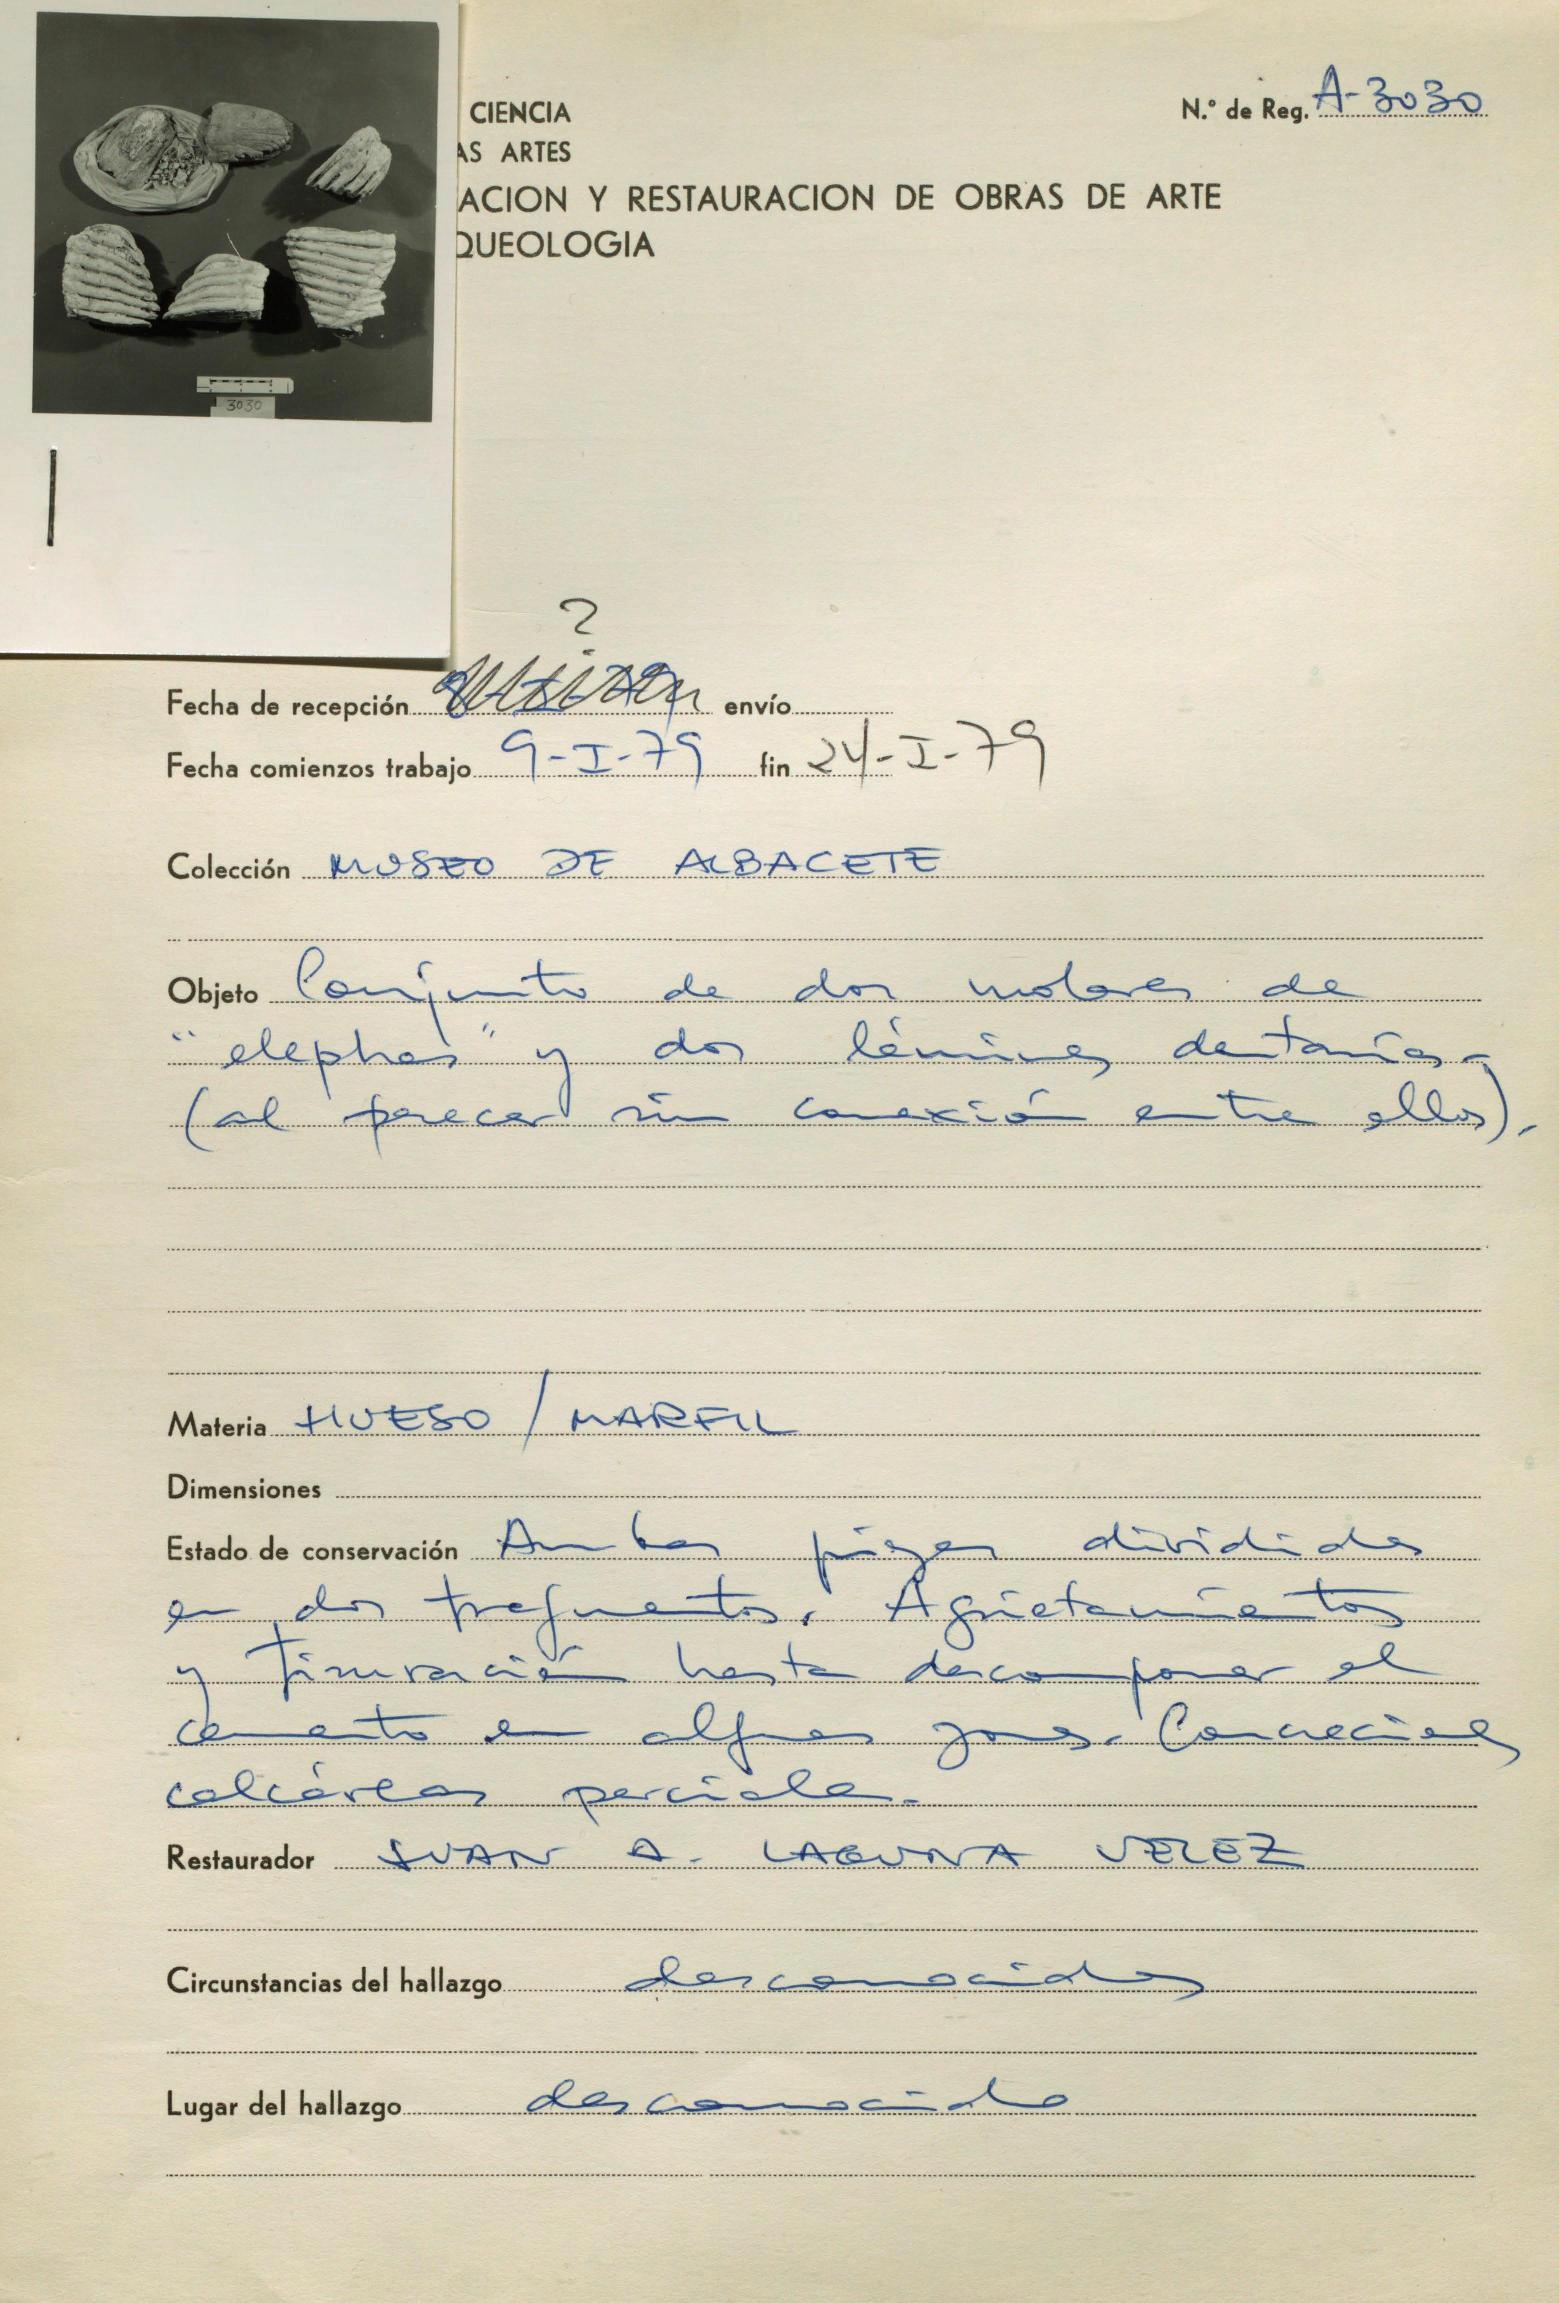 CIENCIA
AS ARTES
ACION Y RESTAURACION DE OBRAS DE ARTE
QUEOLOGIA
N.º de Reg. A-3030
3030
?
Fecha de recepción envío
Fecha comienzos trabajo 9-I-79 fin 24-I-79
Colección MUSEO DE ALBACETE
Objeto Conjunto de dos molares de
"elephas" y dos láminas dentarias
(al parecer sin conexión entre ellos).
Materia HUESO / MARFIL
Dimensiones
Estado de conservación Ambas piezas divididas
en dos fragmentos. Agrietamientos
y fisuración hasta descomponer el
cemento en algunas zonas. Concreciones
calcáreas parciales.
Restaurador JUAN A. LAGUNA VELEZ
Circunstancias del hallazgo desconocidas
Lugar del hallazgo desconocido